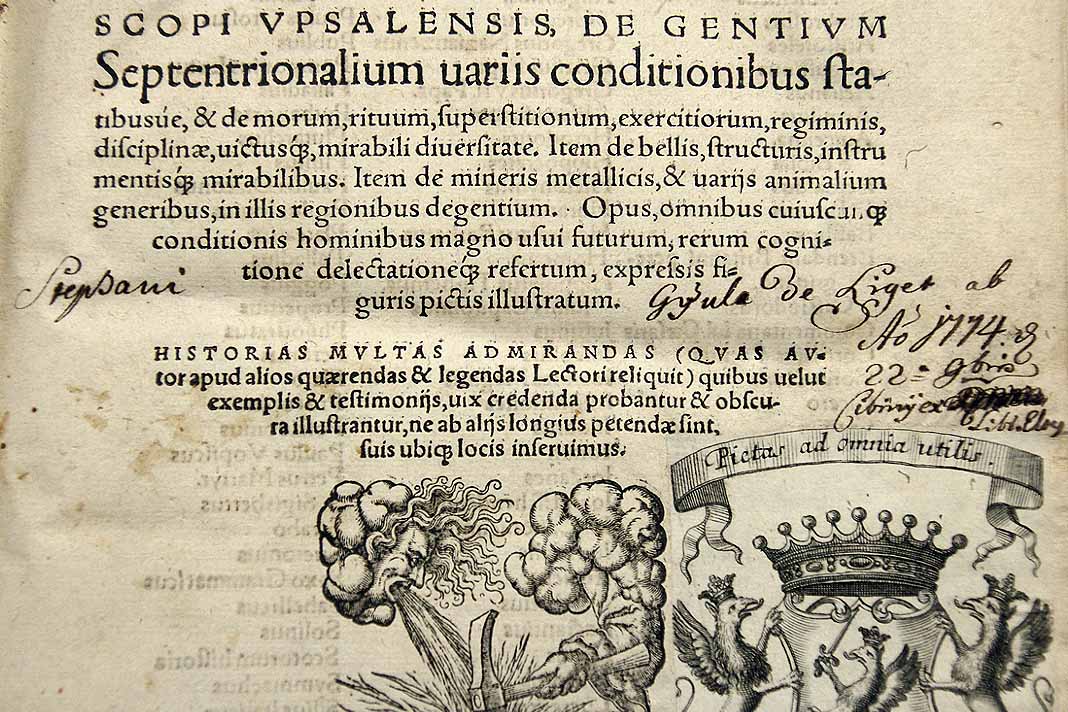 SCOPI VPSALENSIS, DE GENTIVM
Septentrionalium uariis conditionibus sta-
tibusúe, & de morum, rituum, superstitionum, exercitiorum, regiminis,
disciplinæ, uictusq́ꝫ, mirabili diuersitate. Item de bellis, structuris, instru
mentisq́ꝫ mirabilibus. Item de mineris metallicis, & uarijs animalium
generibus, in illis regionibus degentium. Opus, omnibus cuiuscunq́ꝫ
conditionis hominibus magno usui futurum, rerum cogni-
tione delectationeq́ꝫ refertum, expressis fi-
guris pictis illustratum.
Stephani Gyula de Liget ab
Aõ 1774. d
22a 9bris
Cibinÿ ex
Libl.
HISTORIAS MVLTAS ADMIRANDAS (QVAS AV-
tor apud alios quærendas & legendas Lectori reliquit) quibus uelut
exemplis & testimonijs, uix credenda probantur & obscu-
ra illustrantur, ne ab alijs longius petendæ sint,
suis ubiqꝫ locis inseruimus.
Pietas ad omnia utilis.